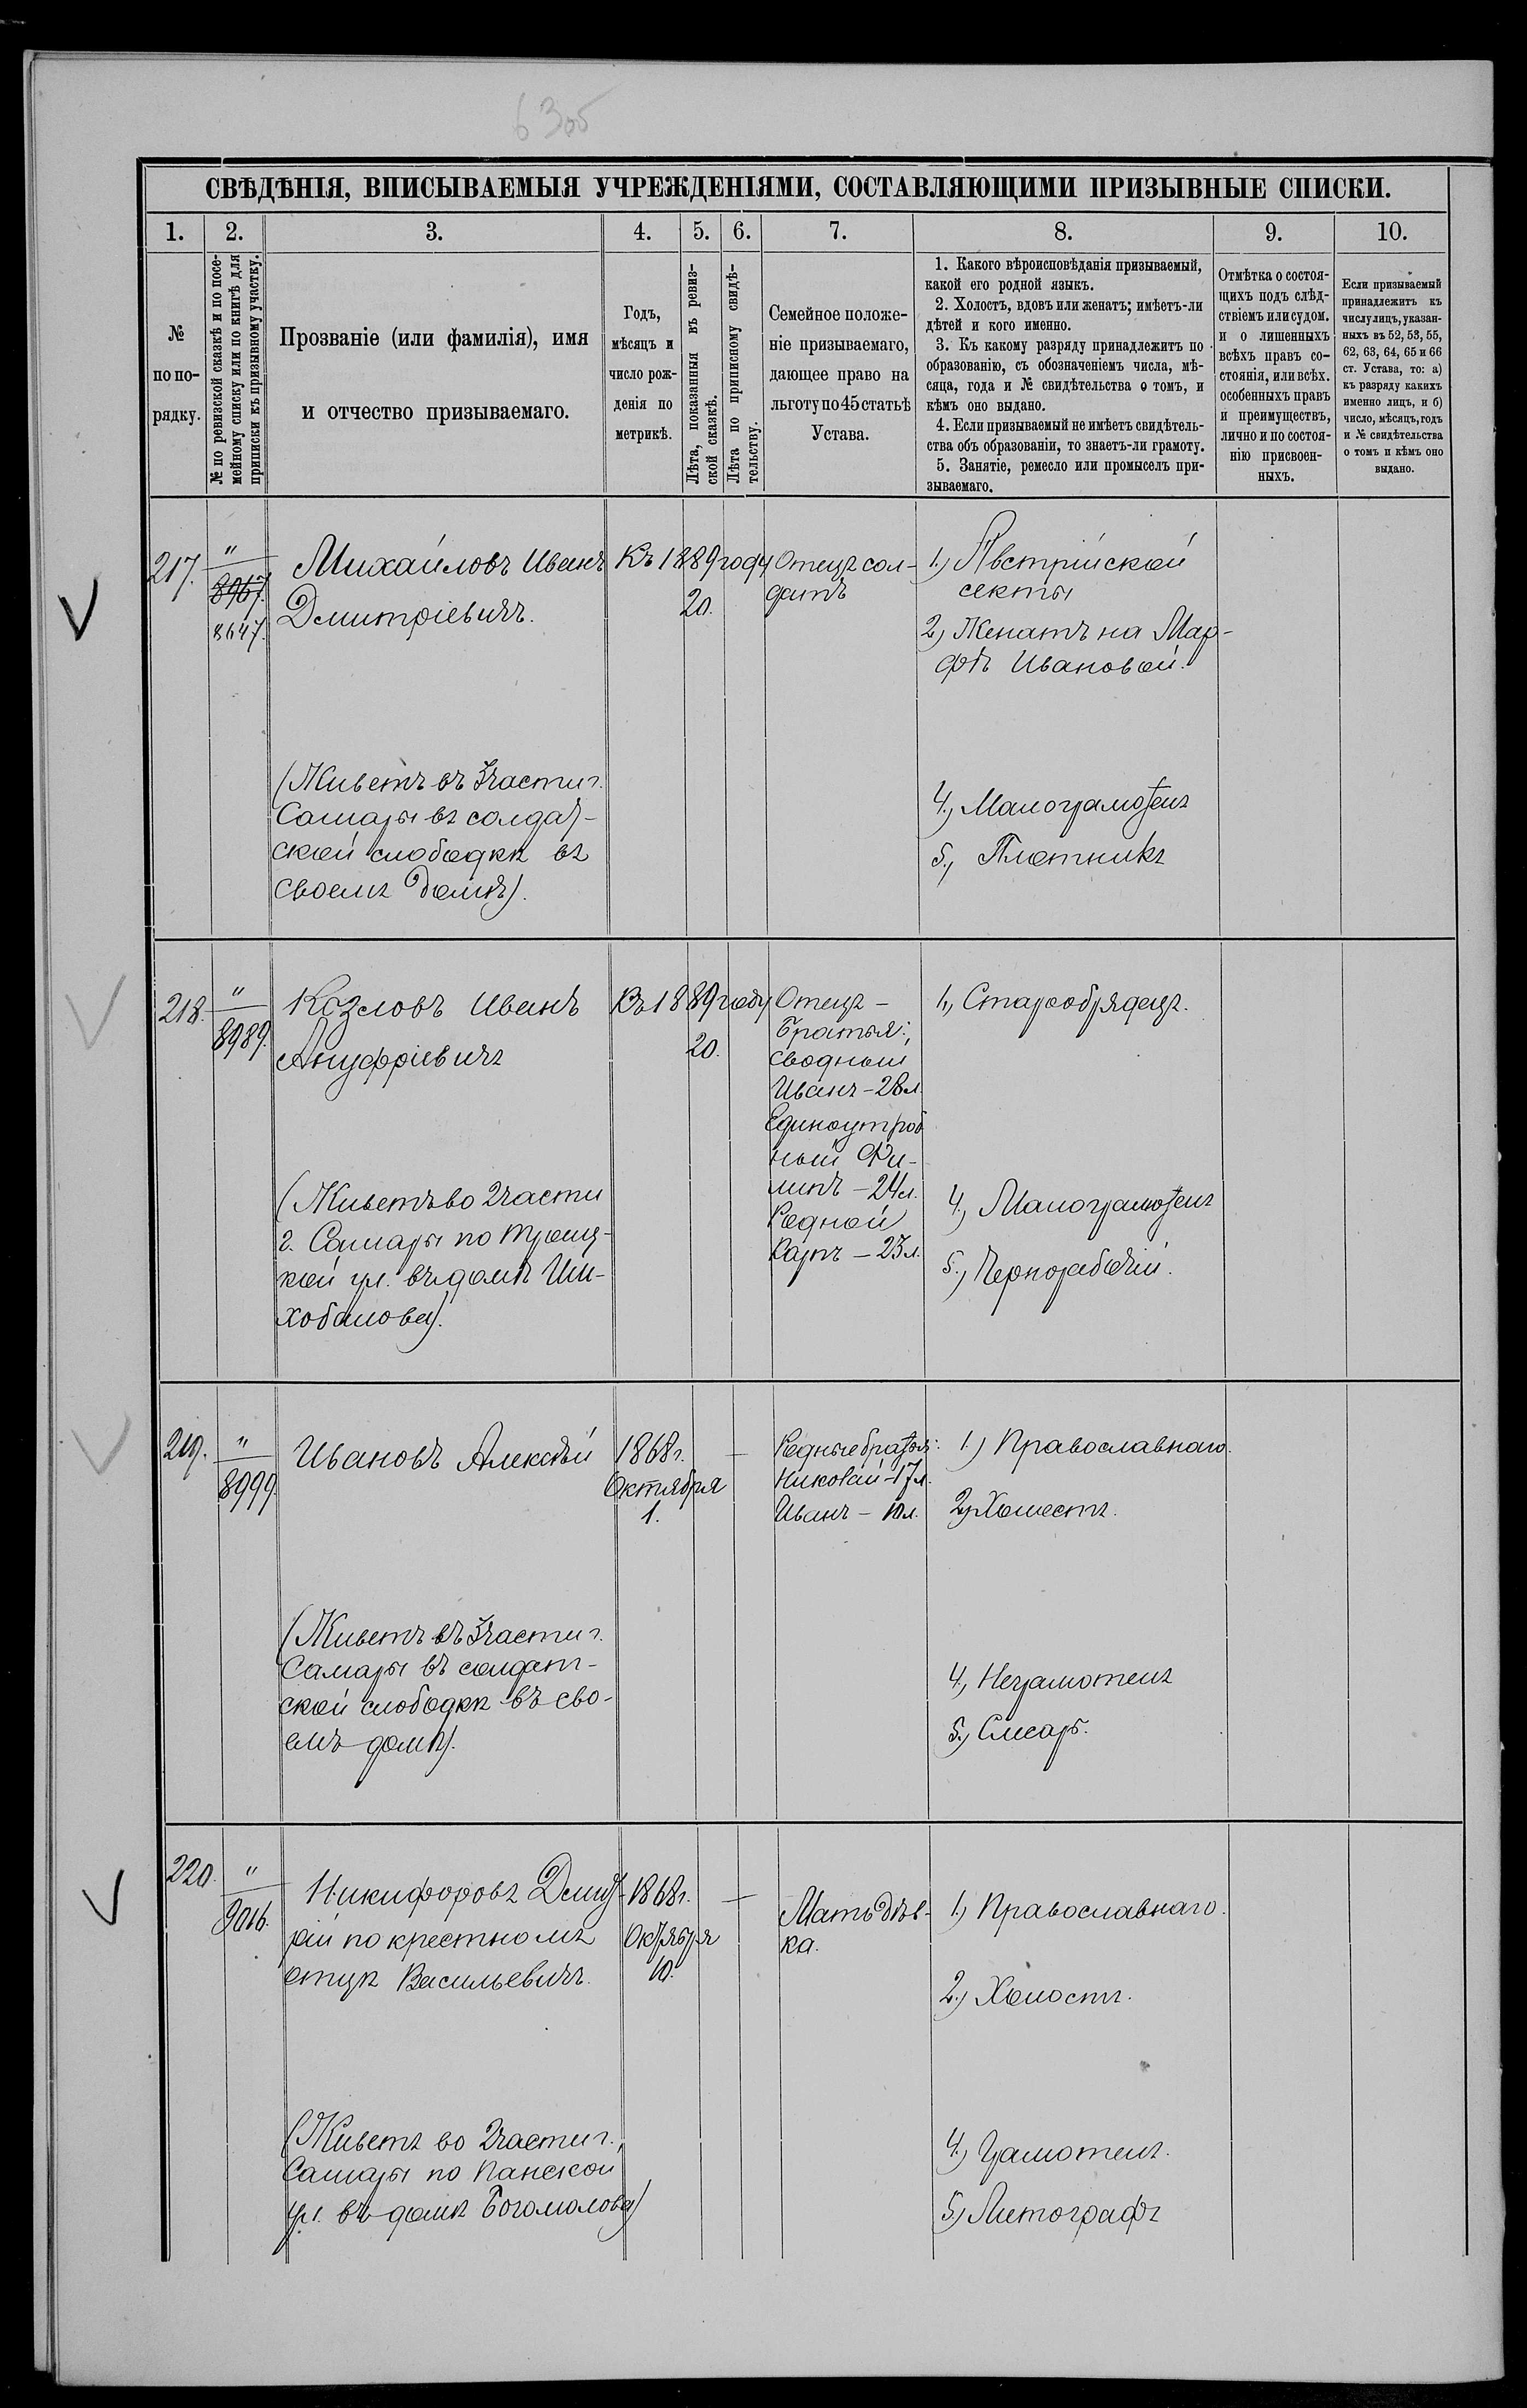 63об
СВѢДѢНІЯ, ВПИСЫВАЕМЫЯ УЧРЕЖДЕНІЯМИ, СОСТАВЛЯЮЩИМИ ПРИЗЫВНЫЕ СПИСКИ.
1. 2. 3. 4. 5. 6. 7. 8. 9. 10.
№
по по-
рядку.
№ по ревизской сказкѣ и по посе-
мейному списку или по книгѣ для
приписки къ призывному участку.
Прозваніе (или фамилія), имя
и отчество призываемаго.
Годъ,
мѣсяцъ и
число рож-
денія по
метрикѣ.
Лѣта, показанныя въ ревиз-
ской сказкѣ.
Лѣта по приписному свидѣ-
тельству.
Семейное положе-
ніе призываемаго,
дающее право на
льготу по 45 статьѣ
Устава.
1. Какого вѣроисповѣданія призываемый,
какой его родной языкъ.
2. Холостъ, вдовъ или женатъ; имѣетъ-ли
дѣтей и кого именно.
3. Къ какому разряду принадлежитъ по
образованію, съ обозначеніемъ числа, мѣ-
сяца, года и № свидѣтельства о томъ, и
кѣмъ оно выдано.
4. Если призываемый не имѣетъ свидѣтель-
ства объ образованіи, то знаетъ-ли грамоту.
5. Занятіе, ремесло или промыселъ при-
зываемаго.
Отмѣтка о состоя-
щихъ подъ слѣд-
ствіемъ или судом.
и о лишенныхъ
всѣхъ правъ со-
стоянія, или всѣх.
особенныхъ правъ
и преимуществъ,
лично и по состоя-
нію присвоен-
ныхъ.
Если призываемый
принадлежитъ къ
числу лицъ, указан-
ныхъ въ 52, 53, 55,
62, 63, 64, 65 и 66
ст. Устава, то: а)
къ разряду какихъ
именно лицъ, и б)
число, мѣсяцъ, годъ
и № свидѣтельства
о томъ и кѣмъ оно
выдано.
217.
"
8967.
8647.
Михайловъ Иванъ
Дмитріевичъ.
(Живетъ въ 3 части г.
Самары въ солдат-
ской слободкѣ въ
своемъ домѣ).
Къ 1889 году
20.
Отецъ сол-
датъ
1.) Австрійской
секты
2.) Женатъ на Мар-
фѣ Ивановой.
4.) Малограмотенъ
5.) Плотникъ
218.
"
8989.
Козловъ Иванъ
Ануфріевичъ
(Живетъ во 2 части
г. Самары по Троиц-
кой ул. въ домѣ Ши-
хобалова).
Къ 1889 году
20.
Отецъ –
Братья:,
сводный
Иванъ – 28 л.
Единоутроб
ный Фи-
липъ – 24 л.
Родной
Карпъ – 23 л.
1.) Старообрядецъ.
4.) Малограмотенъ
5.) Чернорабочій.
219.
"
8999.
Ивановъ Алексѣй
(Живетъ въ 3 части г.
Самары въ солдат-
ской слободкѣ въ сво-
емъ домѣ).
1868 г.
Октября
1.
—
Родные братья:
Николай – 17 л.
Иванъ – 10 л.
1.) Православнаго.
2.) Холостъ.
4.) Неграмотенъ
5.) Слесарь.
220.
"
9016.
Никифоровъ Дмит-
рій по крестномъ
отцѣ Васильевичъ.
(Живетъ во 2 части г.
Самары по Панской
ул. въ домѣ Богомолова)
1868 г.
Октября
10.
—
Мать дѣв-
ка.
1.) Православнаго.
2.) Холостъ.
4.) Грамотенъ.
5.) Литографъ